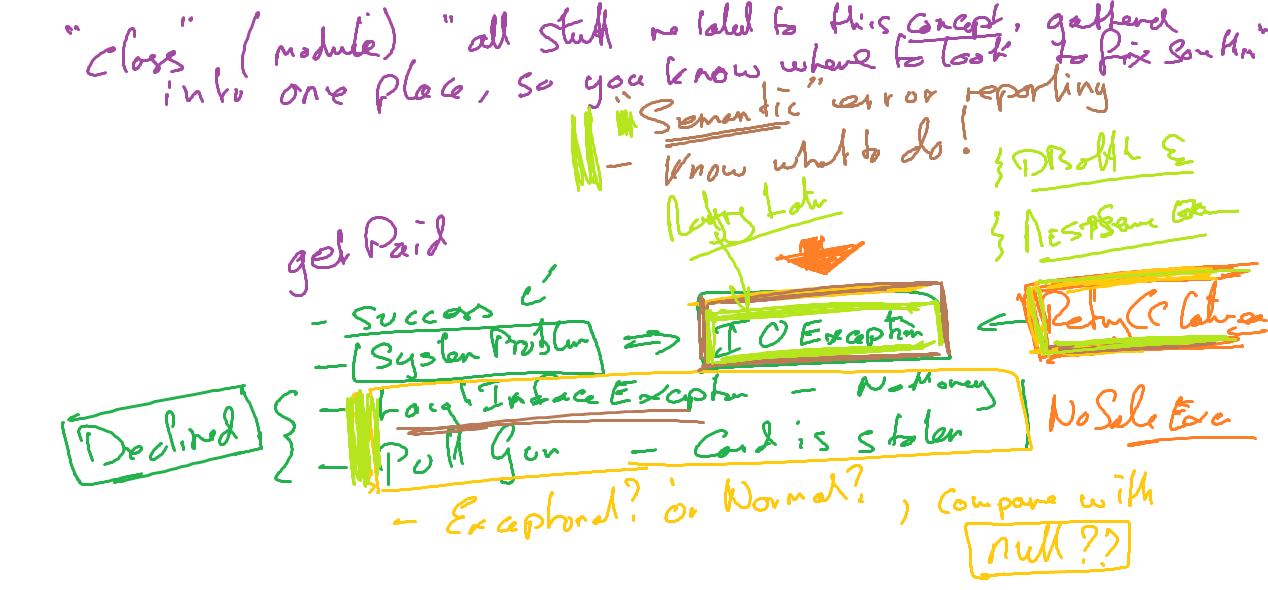 "class" (module) "all stuff related to this concept, gathered
into one place, so you know where to look to fix
"Semantic" error reporting
- Know what to do!
} DB
Retry Later
}
getPaid
- Success
- System Problem => IOException <- Retry CC
Declined { - Exception - No Money
- Pull Gun - Card is stolen
NoSale
- Exceptional? or Normal?, compare with
null??